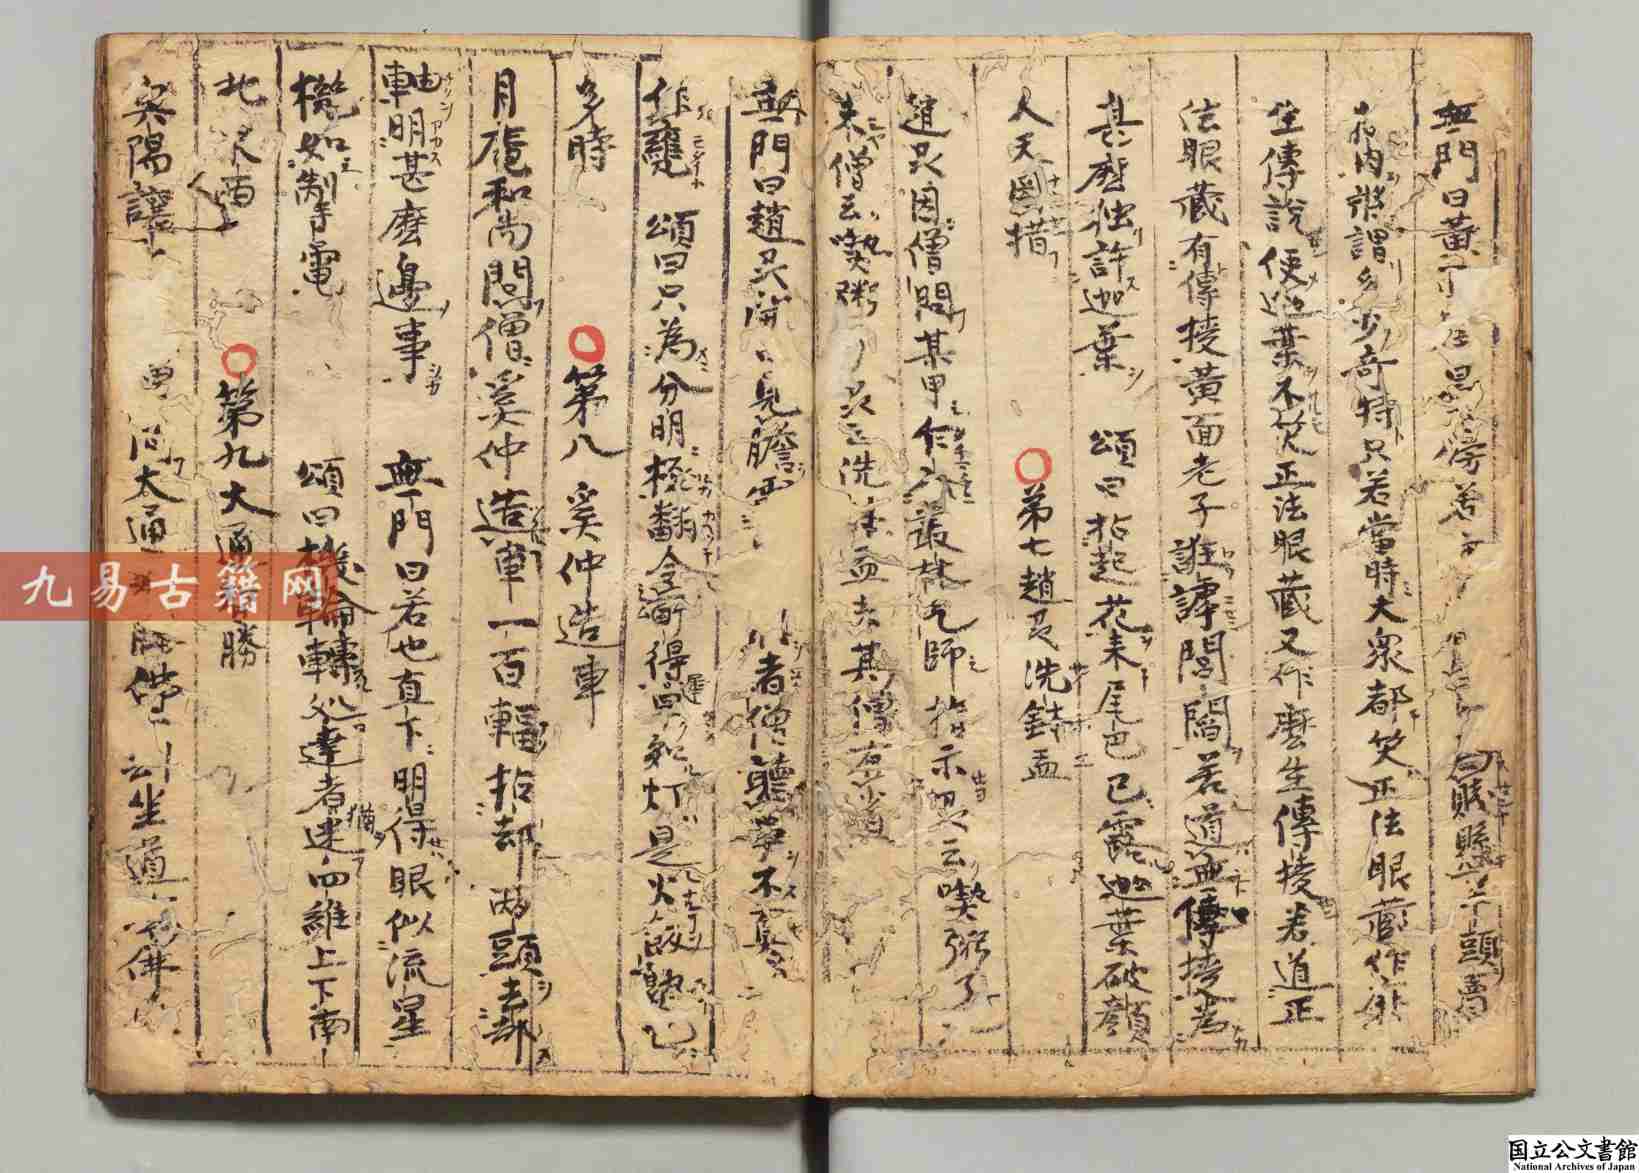 無門曰黄
羊頭
内將謂多少奇特只若當時大衆都笑正法眼藏作
生傳說便迦葉不笑正法眼藏又作麼生傳授若道正
法眼藏有傳授黄面老子誑謼閭閻若道無傳授為
甚麼独許迦葉 頌曰拈起花来尾巴已露迦葉破顔
人天罔措
第七趙州洗鉢盂
趙州因僧問某甲乍入叢林乞師指示州云喫粥了
未僧云喫粥了州云洗鉢盂去其僧有省
無門曰趙州開口見膽 者僧聽事不真
作甕 頌曰只為分明極翻令所得遲早知灯是火飯熟已
多時
第八 奚仲造車
月庵和尚問僧奚仲造車一百輻拈却兩頭去却
軸明甚麼邊事 無門曰若也直下明得眼似流星
機如掣電 頌曰機輪轉処達者猶迷四維上下南
北東西
第九大通智勝
興陽讓 問大通 佛 坐道
九易古籍网
国立公文書館
National Archives of Japan